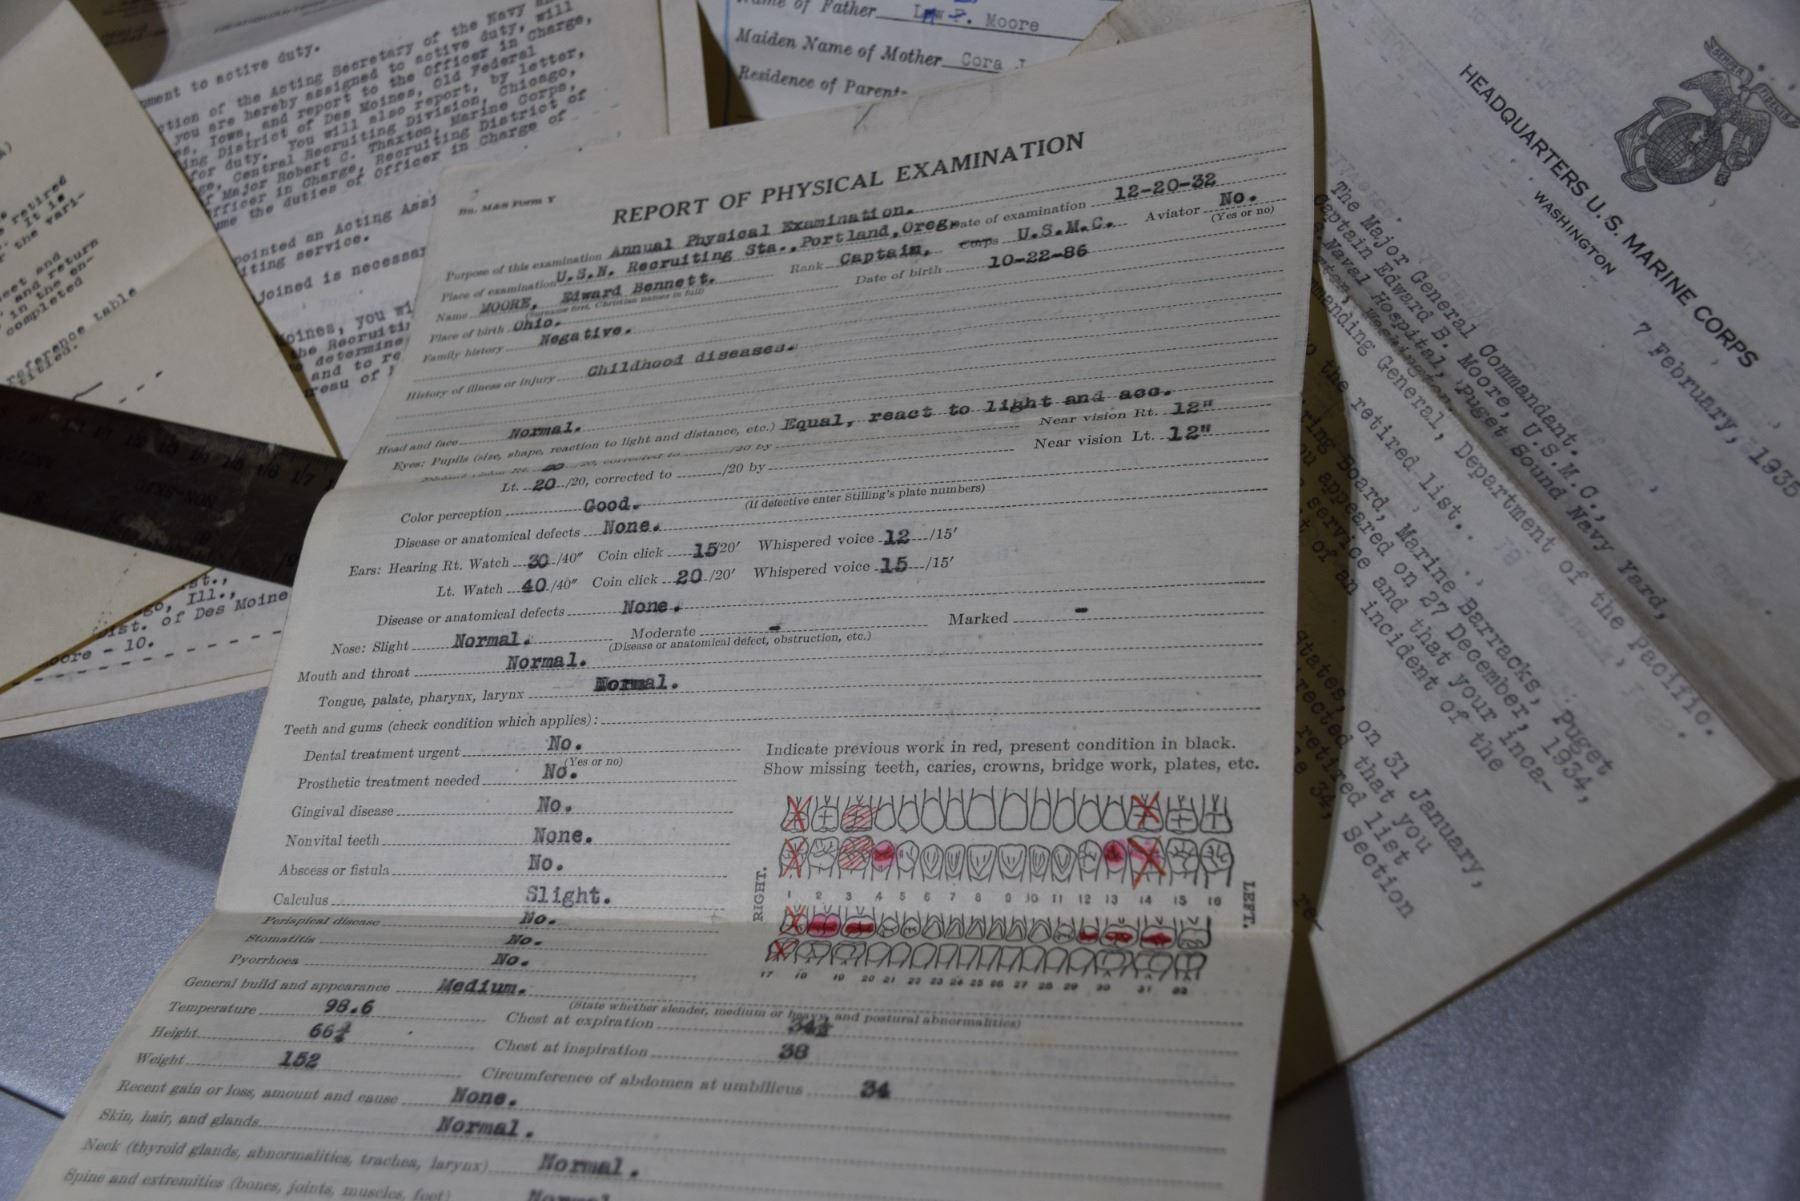 pment to active duty.
tion of the Acting Secretary of the Navy
you are hereby assigned to active duty, will
Iowa, and report to the Officer in Charge,
ing District of Des Moines, Old Federal
for duty. You will also report, by letter,
Central Recruiting Division, Chicago,
Major Robert C. Thaxton, Marine Corps,
Officer in Charge, Recruiting District of
the duties of Officer in Charge of
pointed an Acting Assi
iting service.
joined is necessar
Moines, you wi
the Recruiti
determine
and to re
reau of
retired
It is
the vari-
eet and
and return
in the en-
completed
reference table
NON-SKID
st.,
go, Ill.,
Dist. of Des Moine
oore - 10.
Name of Father Moore
Maiden Name of Mother Cora J
Residence of Parents
M&S Form Y
REPORT OF PHYSICAL EXAMINATION
Purpose of this examination Annual Physical Examination. Date of examination 12-20-32
Place of examination U.S.N. Recruiting Sta., Portland, Oreg. Aviator No.
(Yes or no)
Name MOORE, Edward Bennett. Rank Captain, Corps U.S.M.C.
(Surname first, Christian names in full)
Place of birth Ohio. Date of birth 10-22-86
Family history Negative.
History of illness or injury Childhood diseases.
Head and face Normal.
Eyes: Pupils (size, shape, reaction to light and distance, etc.) Equal, react to light and acc.
20 /20, corrected to /20 by Near vision Rt. 12"
Lt. 20 /20, corrected to /20 by Near vision Lt. 12"
Color perception Good. (If defective enter Stilling's plate numbers)
Disease or anatomical defects None.
Ears: Hearing Rt. Watch 30 /40" Coin click 15 20' Whispered voice 12 /15'
Lt. Watch 40 /40" Coin click 20 /20' Whispered voice 15 /15'
Disease or anatomical defects None.
Nose: Slight Normal. Moderate - Marked -
(Disease or anatomical defect, obstruction, etc.)
Mouth and throat Normal.
Tongue, palate, pharynx, larynx Normal.
Teeth and gums (check condition which applies):
Dental treatment urgent No.
(Yes or no)
Prosthetic treatment needed No.
Gingival disease No.
Nonvital teeth None.
Abscess or fistula No.
Calculus Slight.
Periapical disease No.
Stomatitis No.
Pyorrhoea No.
Indicate previous work in red, present condition in black.
Show missing teeth, caries, crowns, bridge work, plates, etc.
RIGHT.
1 2 3 4 5 6 7 8 9 10 11 12 13 14 15 16
LEFT.
17 18 19 20 21 22 23 24 25 26 27 28 29 30 31 32
General build and appearance Medium.
(State whether slender, medium or heavy, and postural abnormalities)
Temperature 98.6 Chest at expiration 34½
Height 66¾ Chest at inspiration 38
Weight 152 Circumference of abdomen at umbilicus 34
Recent gain or loss, amount and cause None.
Skin, hair, and glands Normal.
Neck (thyroid glands, abnormalities, trachea, larynx) Normal.
Spine and extremities (bones, joints, muscles, feet) Normal
SEMPER FIDELIS
HEADQUARTERS U. S. MARINE CORPS
WASHINGTON
7 February, 1935
The Major General Commandant.
Captain Edward B. Moore, U.S.M.C.,
Naval Hospital, Puget Sound Navy Yard,
Washington.
manding General, Department of the Pacific.
the retired list.
ring Board, Marine Barracks, Puget
you appeared on 27 December, 1934,
service and that your inca-
t of an incident of the
States, on 31 January,
irected that you
retired list
34, Section